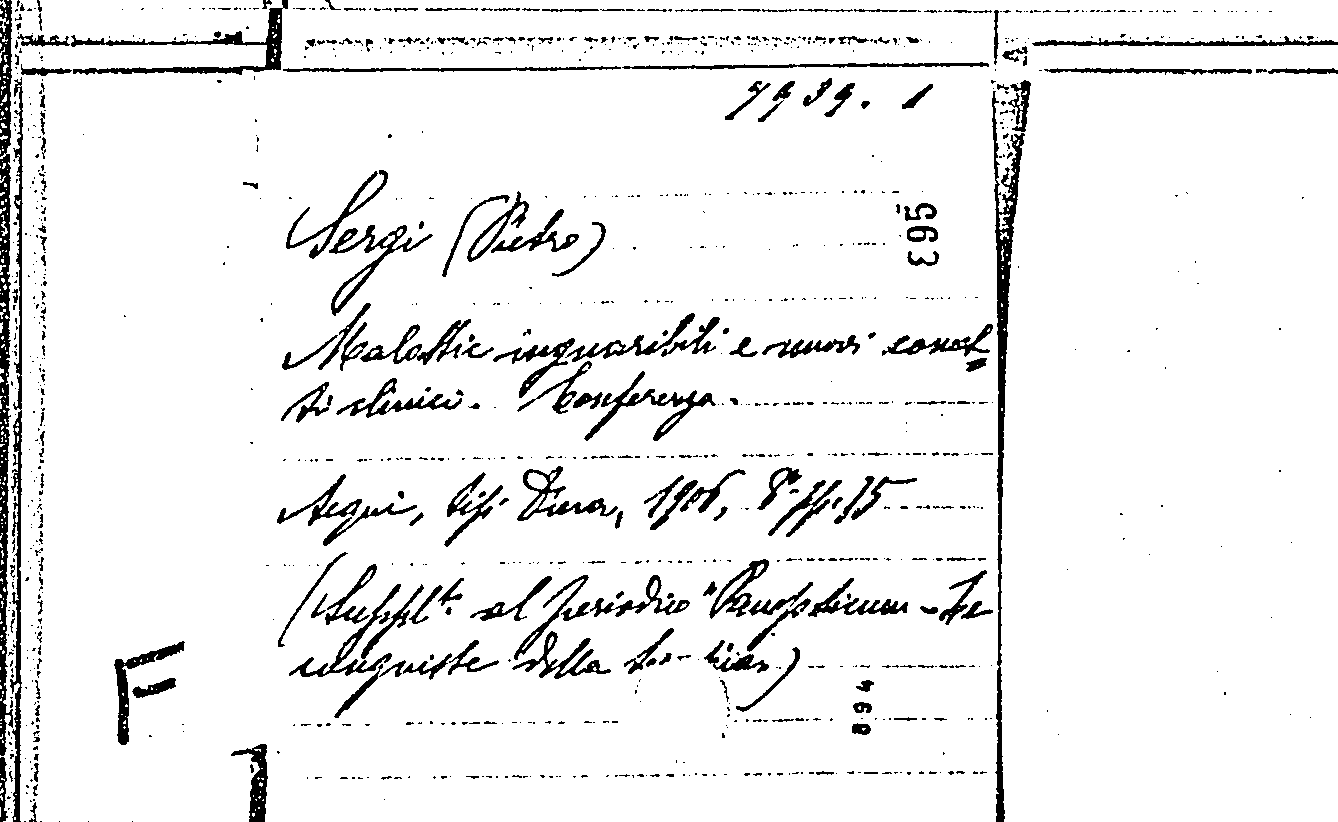 7939. 1
Sergi (Pietro)
395
Malattie inguaribili e nuovi concet=
ti clinici. Conferenza.
Acqui, tip. Tirelli, 1906, 8º. pp. 35
(Suppl.to al periodico "Panopticum - Le
conquiste della
894
F